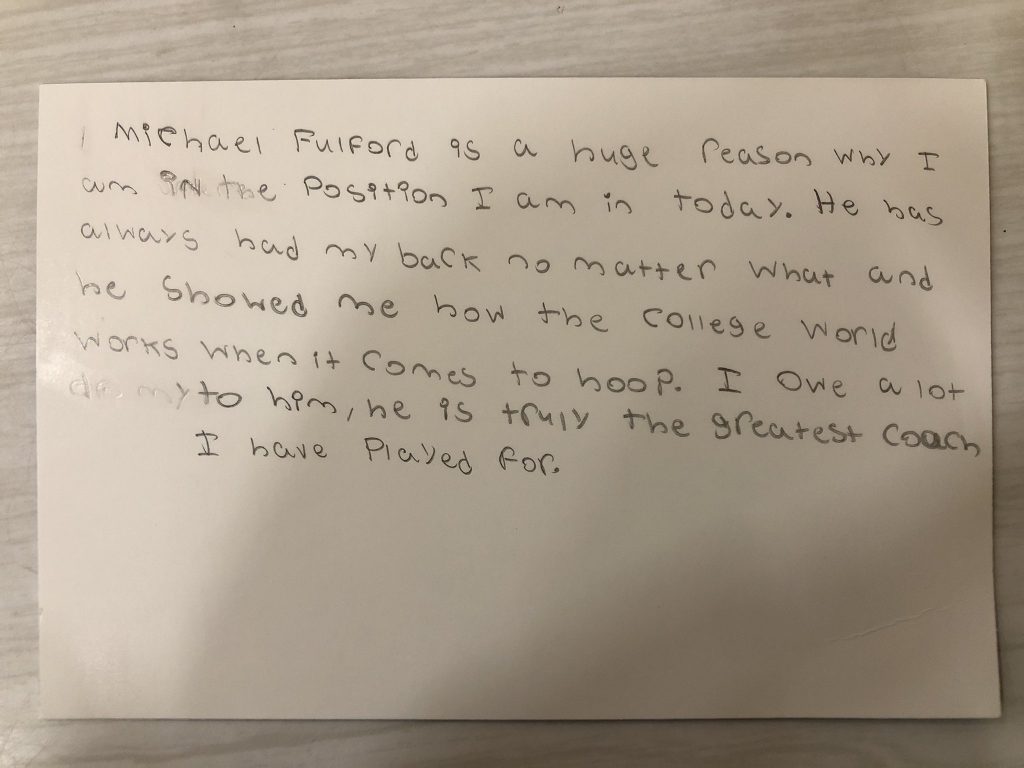 Michael Fulford is a huge reason why I
am in the Position I am in today. He has
always had my back no matter what and
he showed me how the college world
works when it comes to hoop. I owe a lot
to him, he is truly the greatest coach
I have Played for.